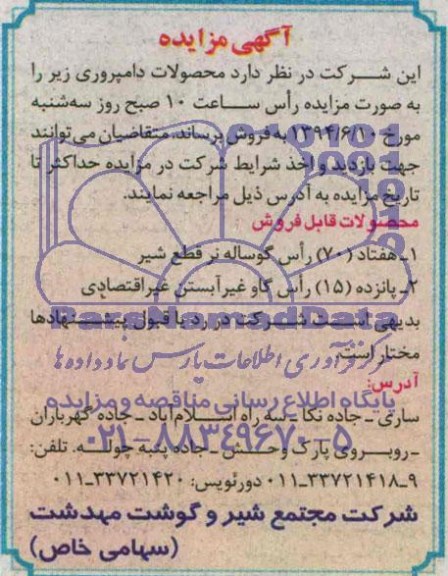 آگهی مزایده
این شرکت در نظر دارد محصولات دامپروری زیر را
به صورت مزایده رأس ساعت ۱۰ صبح روز سه‌شنبه
مورخ ۱۳۹۴/۶/۱۰ به فروش برساند. متقاضیان می‌توانند
جهت بازدید و اخذ شرایط شرکت در مزایده حداکثر تا
تاریخ مزایده به آدرس ذیل مراجعه نمایند.
محصولات قابل فروش
۱ـ هفتاد (۷۰) رأس گوساله نر قطع شیر
۲ـ پانزده (۱۵) رأس گاو غیرآبستن غیراقتصادی
ParsNamadData
بدیهی است شرکت در رد یا قبول پیشنهادها
مختار است.
مرکز فرآوری اطلاعات پارس نماد داده ها
آدرس:
پایگاه اطلاع رسانی مناقصه و مزایده
ساری ـ جاده نکا ـ سه راه اسلام‌آباد ـ جاده گهرباران
۰۲۱-۸۸۳۴۹۶۷۰-۵
ـ روبروی پارک وحش ـ جاده پنبه چوله. تلفن:
۹ـ۳۳۷۲۱۴۱۸-۰۱۱ دورنویس: ۳۳۷۲۱۴۲۰-۰۱۱
شرکت مجتمع شیر و گوشت مهدشت
(سهامی خاص)